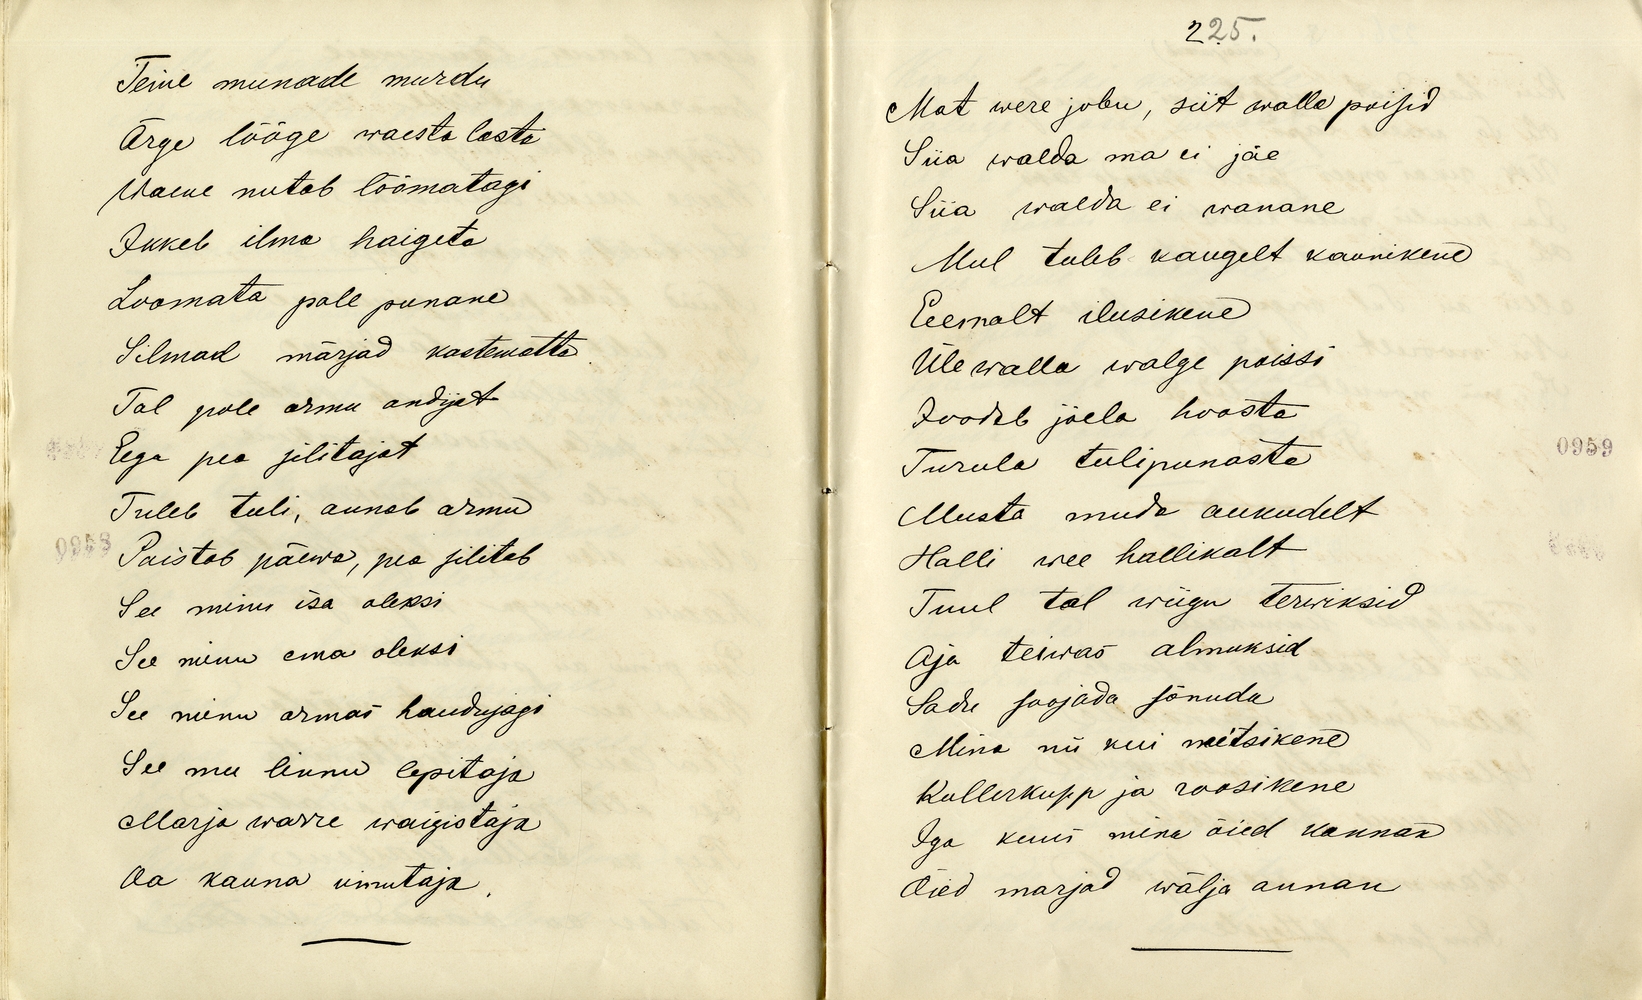 Teine munade murdu
Ärge lööge waesta lasta
Waene nutab löömatagi
Ikkeb ilma haigeta
Loomata pale punane
Silmad märjad kastematta
Tal pole armu andijat
Ega pea silitajat
Tuleb tuli, annab armu
0958
Paistab päewa, pea silitab
See minu isa oleksi
See minu ema oleksi
See minu armas haudujagi
See mu linnu lepitaja
Marja warre waigistaja
Oa kauna uinutaja.
225.
Mat were jobu, siit walla poisid
Siia walda ma ei jäe
Siia walda ei wanane
Mul tuleb kaugelt kaunikene
Eemalt ilusikene
Üle walla walge poissi
Joodab jõela hoosta
Turula tulipunasta
0959
Musta muda aukudelt
Halli wee hallikalt
Tuul tal wiigu terwiksid
Aja teiwas almuksid
Sadu soojada sõnuda
Mina nii kui metsikene
Kullerkupp ja roosikene
Iga kuus mina õied kannan
Õied marjad wälja annan